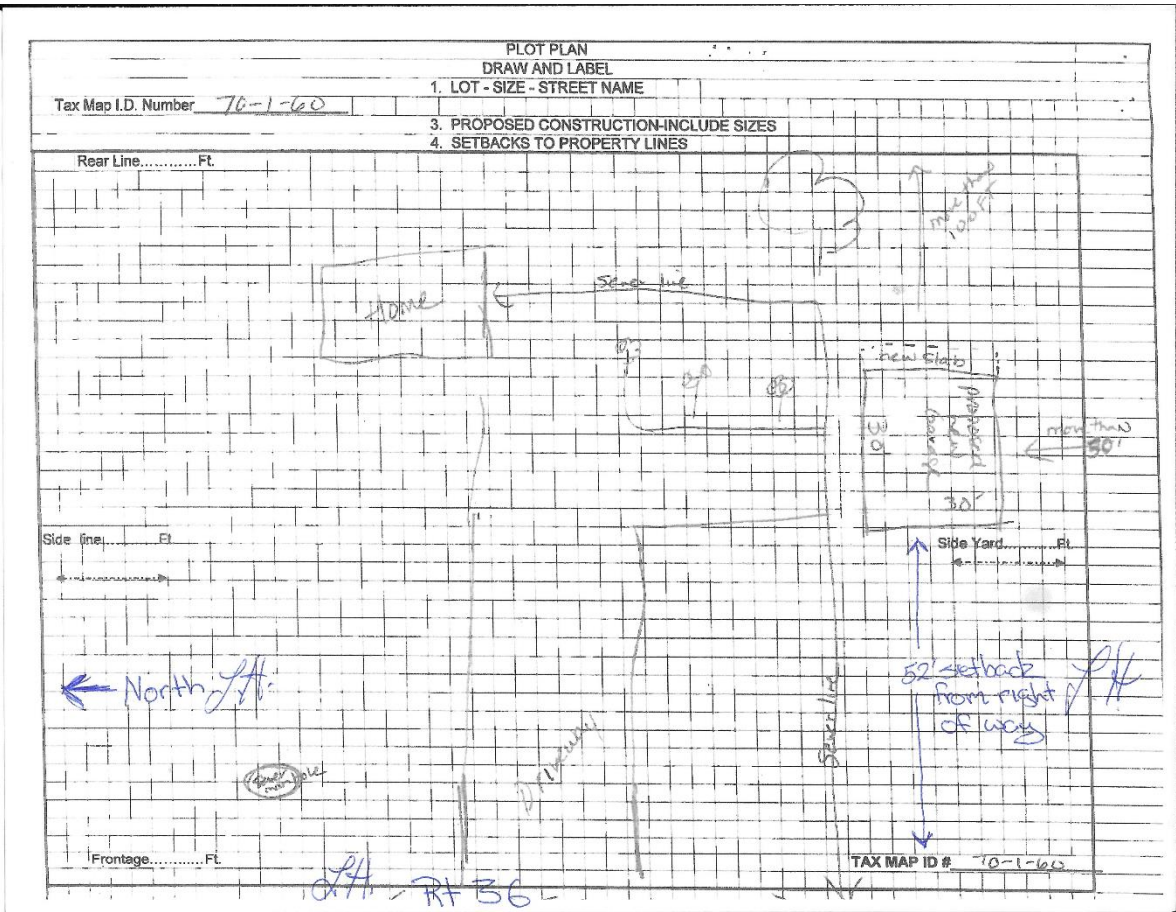 PLOT PLAN
DRAW AND LABEL
1. LOT - SIZE - STREET NAME
Tax Map I.D. Number 70-1-60
3. PROPOSED CONSTRUCTION-INCLUDE SIZES
4. SETBACKS TO PROPERTY LINES
Rear Line............Ft.
more than
100 FT
Sewer line
Home
new slab
proposed
new
garage
30
30'
more than
50'
Side line..........Ft
Side Yard..........Ft.
North LH.
52' setback
from right
of way
LH
Sewer line
Driveway
Sewer
manhole
Frontage............Ft.
TAX MAP ID # 70-1-60
LH - Rt 36